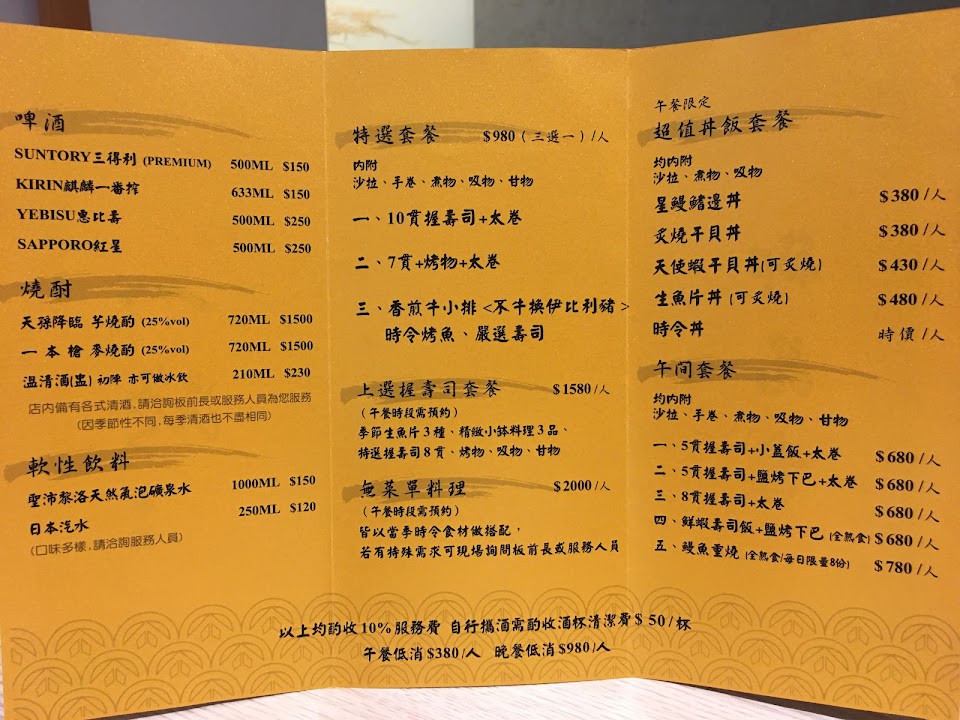 啤酒
SUNTORY三得利 (PREMIUM) 500ML $150
KIRIN麒麟一番搾 633ML $150
YEBISU惠比壽 500ML $250
SAPPORO紅星 500ML $250
燒酎
天孫降臨 芋燒酌 (25%vol) 720ML $1500
一 本 槍 麥燒酌 (25%vol) 720ML $1500
温清酒(盅) 初陣 亦可做冰飲 210ML $230
店内備有各式清酒,請洽詢板前長或服務人員為您服務
(因季節性不同,每季清酒也不盡相同)
軟性飲料
聖沛黎洛天然氣泡礦泉水 1000ML $150
日本汽水 250ML $120
(口味多樣,請洽詢服務人員)
特選套餐 $980(三選一)/人
内附
沙拉、手卷、煮物、吸物、甘物
一、10貫握壽司+太卷
二、7貫+烤物+太卷
三、香煎牛小排 <不牛換伊比利豬>
時令烤魚、嚴選壽司
上選握壽司套餐 $1580/人
(午餐時段需預約)
季節生魚片3種、精緻小缽料理3品、
特選握壽司8貫、烤物、吸物、甘物
無菜單料理 $2000/人
(午餐時段需預約)
皆以當季時令食材做搭配,
若有特殊需求可現場詢問板前長或服務人員
午餐限定
超值丼飯套餐
均内附
沙拉、煮物、吸物
星鰻鰭邊丼 $380/人
炙燒干貝丼 $380/人
天使蝦干貝丼(可炙燒) $430/人
生魚片丼 (可炙燒) $480/人
時令丼 時價/人
午間套餐
均内附
沙拉、手卷、煮物、吸物、甘物
一、5貫握壽司+小蓋飯+太卷 $680/人
二、5貫握壽司+鹽烤下巴+太卷 $680/人
三、8貫握壽司+太卷 $680/人
四、鮮蝦壽司飯+鹽烤下巴 (全熟食) $680/人
五、鰻魚重燒 (全熟食/每日限量8份) $780/人
以上均酌收10%服務費 自行攜酒需酌收酒杯清潔費$50/杯
午餐低消$380/人 晚餐低消$980/人